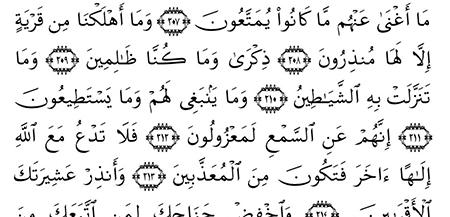 مَآ أَغْنَىٰ عَنْهُم مَّا كَانُوا۟ يُمَتَّعُونَ ﴿٢٠٧﴾ وَمَآ أَهْلَكْنَا مِن قَرْيَةٍ
إِلَّا لَهَا مُنذِرُونَ ﴿٢٠٨﴾ ذِكْرَىٰ وَمَا كُنَّا ظَـٰلِمِينَ ﴿٢٠٩﴾ وَمَا
تَنَزَّلَتْ بِهِ ٱلشَّيَـٰطِينُ ﴿٢١٠﴾ وَمَا يَنۢبَغِى لَهُمْ وَمَا يَسْتَطِيعُونَ
﴿٢١١﴾ إِنَّهُمْ عَنِ ٱلسَّمْعِ لَمَعْزُولُونَ ﴿٢١٢﴾ فَلَا تَدْعُ مَعَ ٱللَّهِ
إِلَـٰهًا ءَاخَرَ فَتَكُونَ مِنَ ٱلْمُعَذَّبِينَ ﴿٢١٣﴾ وَأَنذِرْ عَشِيرَتَكَ
ٱلْأَقْرَبِينَ ﴿٢١٤﴾ وَٱخْفِضْ جَنَاحَكَ لِمَنِ ٱتَّبَعَكَ مِنَ